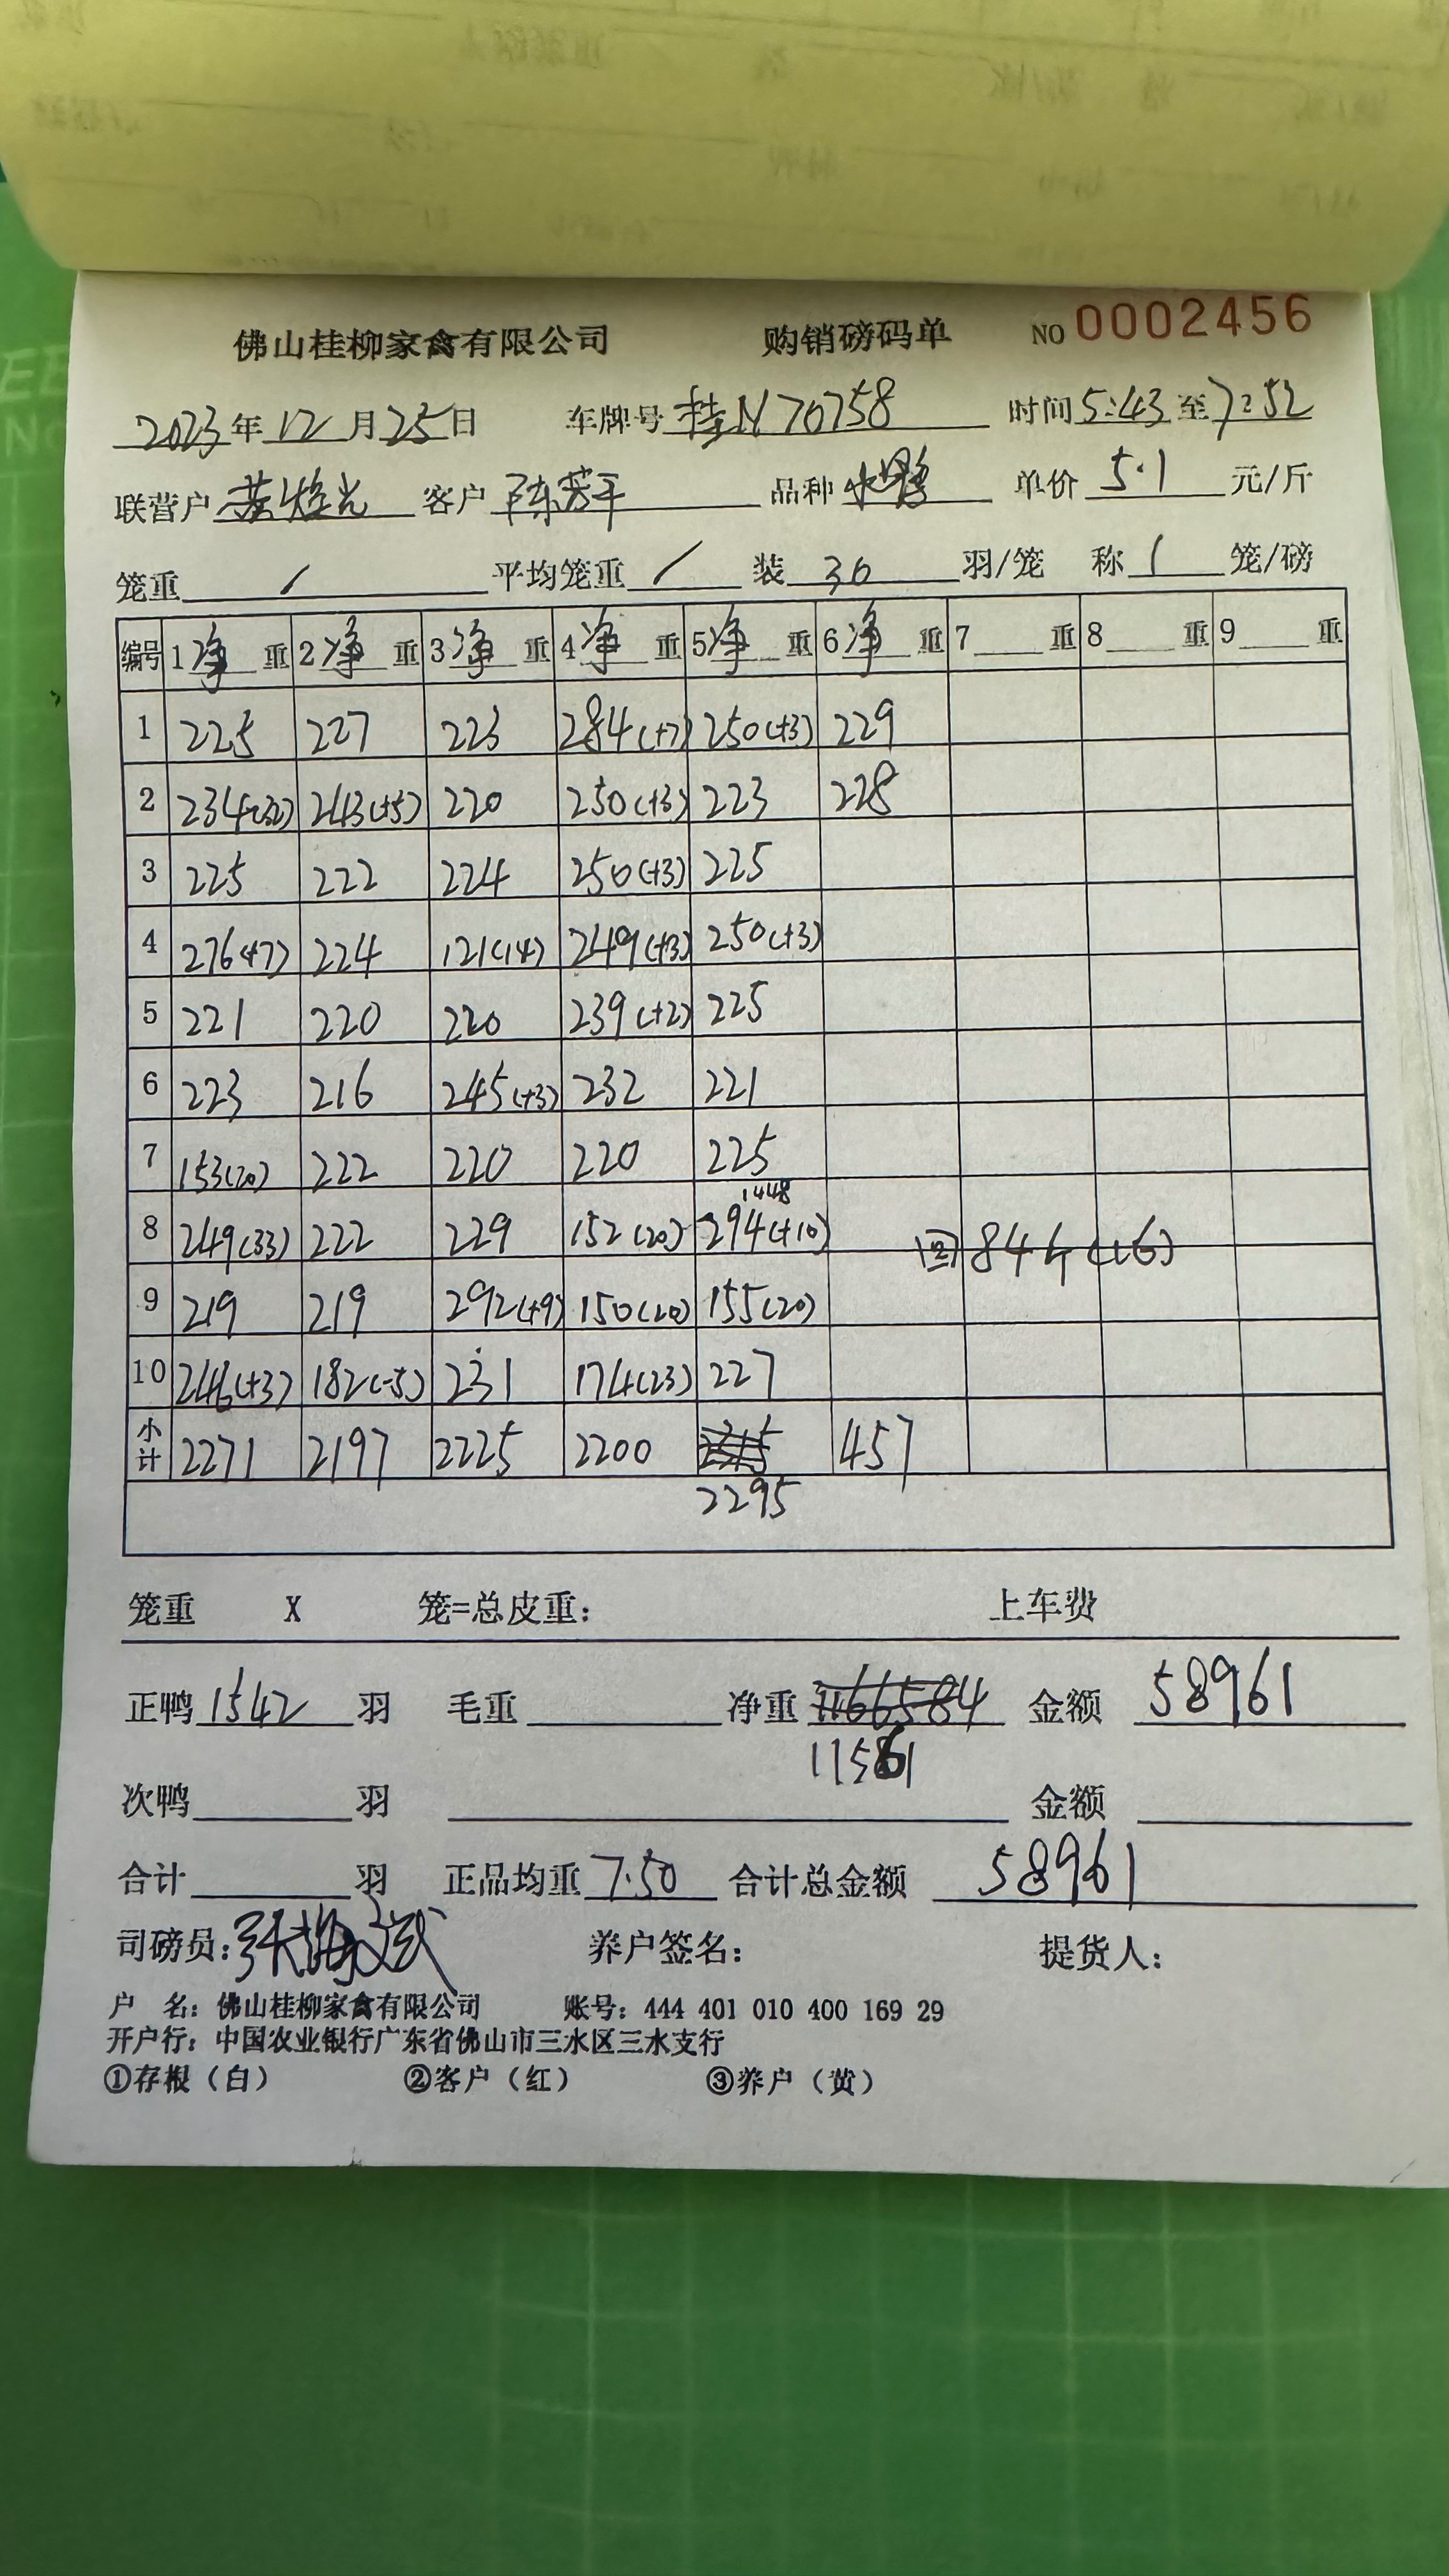 佛山桂柳家禽有限公司 购销磅码单 NO 0002456
2023年12月25日 车牌号 桂N70758 时间 5:43 至 7:52
联营户 客户 陈芳平 品种 单价 5.1 元/斤
笼重 / 平均笼重 / 装 30 羽/笼 称 1 笼/磅
编号 1净重 2净重 3净重 4净重 5净重 6净重 7 重 8 重 9 重
1 225 227 223 284(+7) 250(+3) 229
2 234(32) 243(+5) 220 250(+3) 223 228
3 225 222 224 250(+3) 225
4 276(+7) 224 121(14) 249(+3) 250(+3)
5 221 220 220 239(+2) 225
6 223 216 245(+3) 232 221
7 153(20) 222 220 220 225
1448
8 249(33) 222 229 152(20) 294(+10) 回 844(16)
9 219 219 292(+9) 150(20) 155(20)
10 246(+3) 182(-5) 231 174(23) 227
小计 2271 2197 2225 2200 457
2295
笼重 X 笼=总皮重: 上车费
正鸭 1542 羽 毛重 净重 金额 58961
11561
次鸭 羽 金额
合计 羽 正品均重 7.50 合计总金额 58961
司磅员: 养户签名: 提货人:
户 名: 佛山桂柳家禽有限公司 账号: 444 401 010 400 169 29
开户行: 中国农业银行广东省佛山市三水区三水支行
①存根（白） ②客户（红） ③养户（黄）